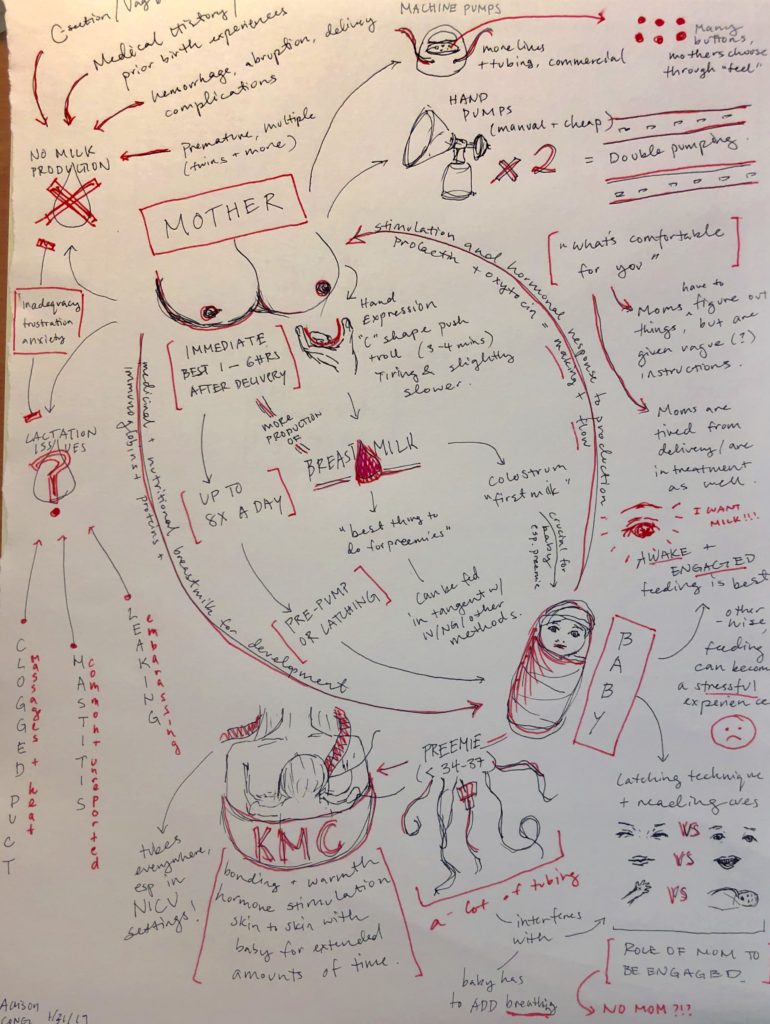 C-section/Vag
Medical History/
prior birth experiences
hemorrhage, abruption, delivery
complications
Premature, multiple
(twins + more)
NO MILK
PRODUCTION
MACHINE PUMPS
more lines
+ tubing, commercial
Many
buttons,
mothers choose
through "feel"
HAND
PUMPS
(manual + cheap)
x 2
= Double pumping.
MOTHER
stimulation and hormonal response to production
prolactin + oxytocin = making + flow
"what's comfortable
for you"
Moms have to figure out
things, but are
given vague(?)
instructions.
Moms are
tired from
delivery/are
in treatment
as well.
inadequacy
frustration
anxiety
Hand
Expression
"C" shape push
+ roll (3-4 mins)
Tiring & slightly
slower.
IMMEDIATE
BEST 1-6HRS
AFTER DELIVERY
MORE
PRODUCTION
OF
BREAST MILK
UP TO
8X A DAY
PRE-PUMP
OR LATCHING
"best thing to
do for preemies"
Can be fed
in tangent w/
IV/NG/other
methods.
Colostrum
"first milk"
crucial for
baby
esp. preemie
medicinal + nutritional breastmilk for development
immunoglobins + proteins +
LACTATION
ISSUES
?
CLOGGED DUCT
massages + heat
MASTITIS
common + unreported
LEAKING
embarassing
I WANT
MILK!!!
AWAKE +
ENGAGED
feeding is best
other
-wise,
feeding
can become
a stressful
experience
BABY
PREEMIE
(< 34-37)
a lot of tubing
interferes
with
baby has
to ADD breathing
KMC
bonding + warmth
hormone stimulation
skin to skin with
baby for extended
amounts of time.
tubes
everywhere,
esp in
NICU
settings!
Latching technique
+ reading cues
VS
VS
VS
ROLE OF MOM TO
BE ENGAGED.
NO MOM?!?